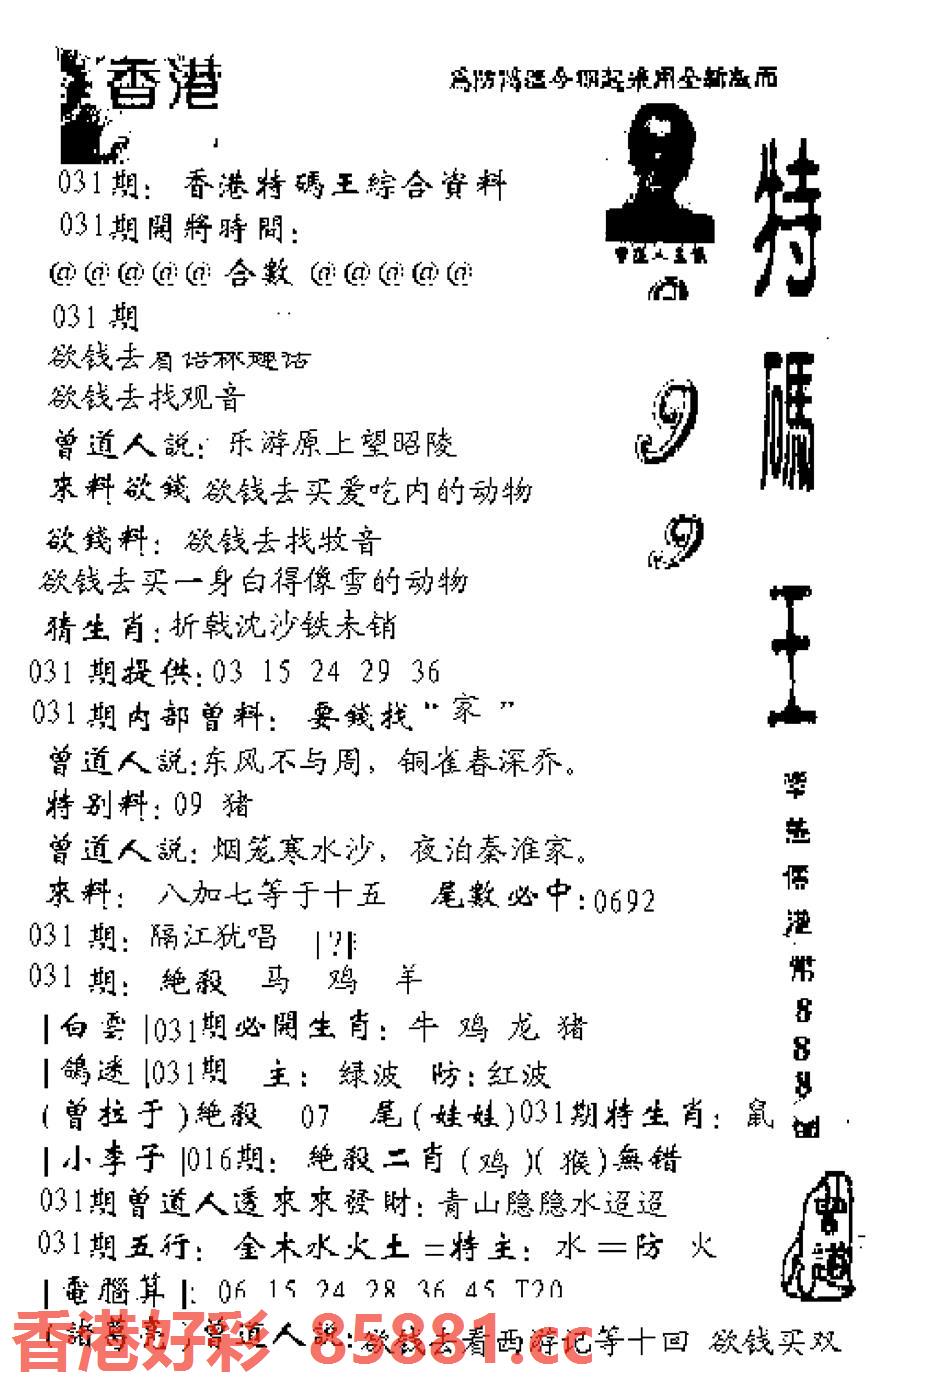 香港
031期：香港特碼王綜合資料
031期開將時間：
@@@@@合數@@@@@
031期
欲钱去
欲钱去找观音
曾道人説：乐游原上望昭陵
來料欲錢 欲钱去买爱吃内的动物
欲錢料：欲钱去找牧音
欲钱去买一身白得像雪的动物
猜生肖：折戟沈沙铁未销
031期提供：03 15 24 29 36
031期内部曾料：要錢找“家”
曾道人説：东风不与周，铜雀春深乔。
特别料：09 猪
曾道人説：烟笼寒水沙，夜泊秦淮家。
來料：八加七等于十五 尾數必中：0692
031期：隔江犹唱 |?|
031期：絶殺 马 鸡 羊
|白雲|031期必開生肖：牛 鸡 龙 猪
|鴿迷|031期 主：绿波 防：红波
(曾拉于)絶殺 07 尾(娃娃)031期特生肖：鼠
|小李子|016期：絶殺二肖(鸡)(猴)無错
031期曾道人透來來發財：青山隐隐水迢迢
031期五行：金木水火土＝特主：水＝防 火
|電腦算|：06 15 24 28 36 45 T20
(諸葛亮)曾道人説：欲钱去看西游记等十回 欲钱买双
香港好彩 85881.cc
特碼王
99
港幣888
曾道